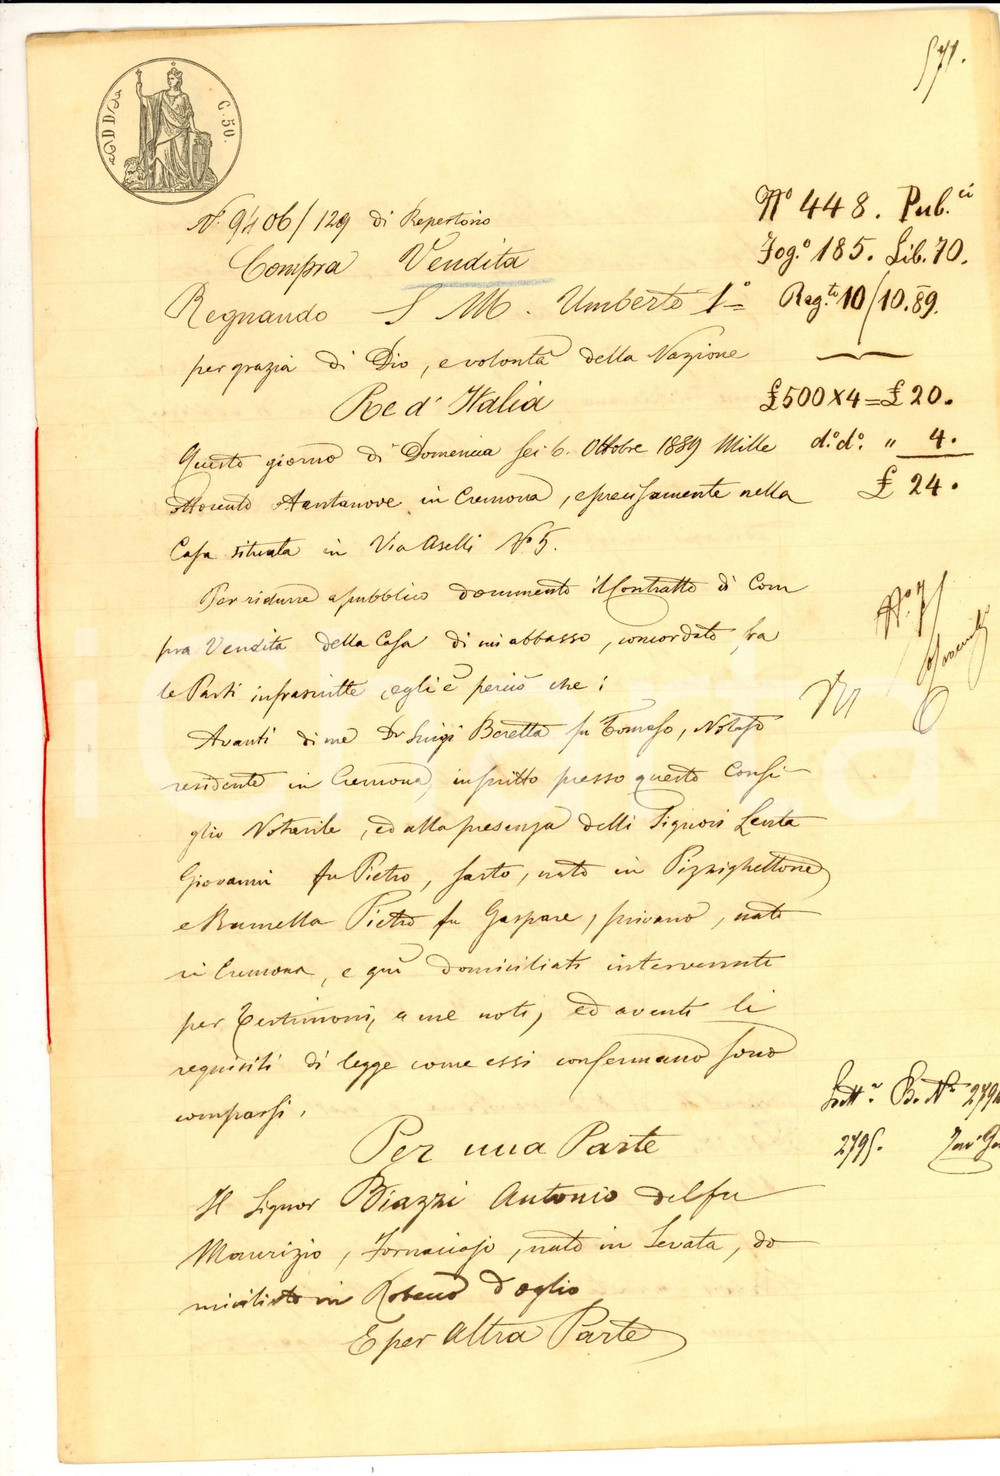 571.
C. 50.
N.º 9406/129 di Repertorio
Compra Vendita
Regnando S. M. Umberto 1º
per grazia di Dio, e volontà della Nazione
Re d'Italia
Questo giorno di Domenica sei 6. Ottobre 1889 Mille
ottocento ottantanove in Cremona, e precisamente nella
Casa situata in Via Aselli Nº 5.
Per ridurre a pubblico documento il Contratto di Com
pra Vendita della Casa di cui abbasso, concordato fra
le Parti infrascritte, egli è perciò che:
Avanti di me Dr Luigi Beretta fu Tomaso, Notajo
residente in Cremona, inscritto presso questo Consi-
glio Notarile, ed alla presenza delli Signori Lenta
Giovanni fu Pietro, sarto, nato in Pizzighettone
e Ramella Pietro fu Gaspare, privato, nato
in Cremona, e qui domiciliati intervenuti
per Testimonj, a me noti, ed aventi li
requisiti di legge come essi confermano sono
comparsi.
Per una Parte
Il Signor Biazzi Antonio del fu
Maurizio, Fornaciajo, nato in Levata, do
miciliato in Robecco d'oglio
E per Altra Parte
Nº 448. Pub.ci
Fog.º 185. Lib. 70.
Reg.to 10/10.89.
£500x4=£20.
d.º d.º " 4.
£ 24.
Nº 71
B. Nº 2794
2795.